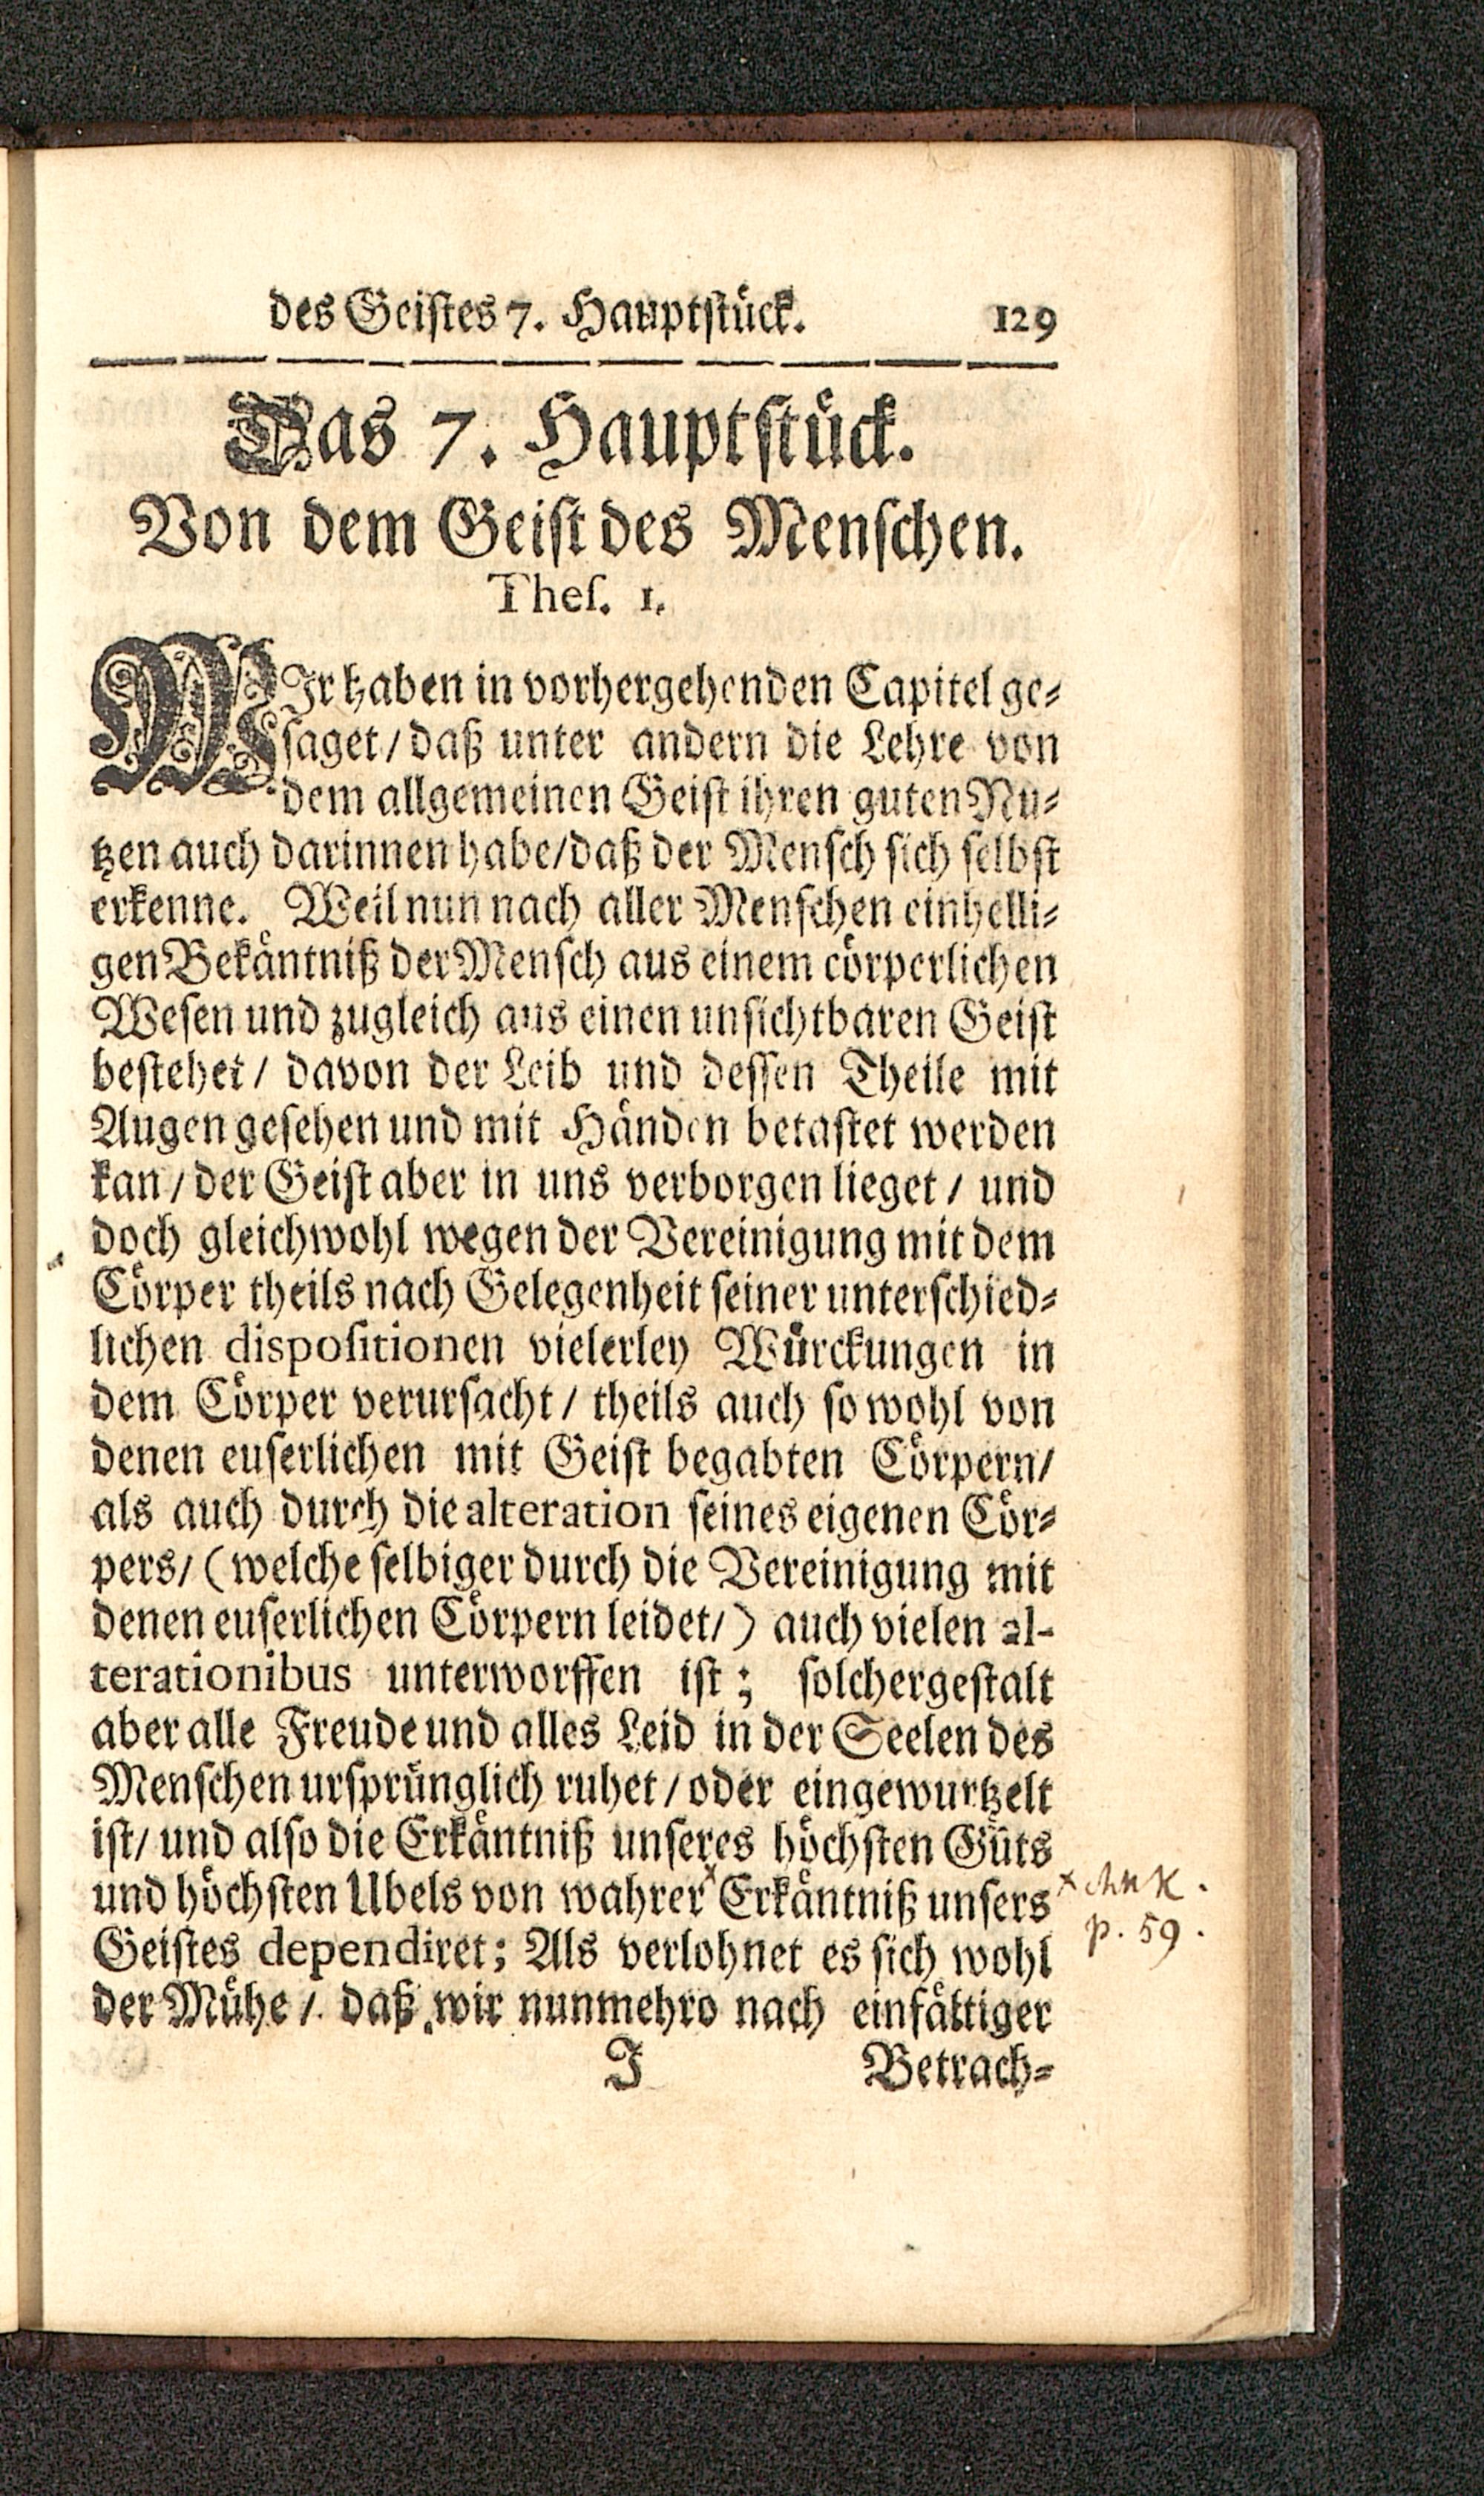 des Geistes 7. Hauptstück. 129
Das 7. Hauptstück.
Von dem Geist des Menschen.
Thes. 1.
WIr haben in vorhergehenden Capitel ge-
saget/ daß unter andern die Lehre von
dem allgemeinen Geist ihren guten Nu-
tzen auch darinnen habe/daß der Mensch sich selbst
erkenne. Weil nun nach aller Menschen einhelli-
gen Bekäntniß der Mensch aus einem cörperlichen
Wesen und zugleich aus einen unsichtbaren Geist
bestehet/ davon der Leib und dessen Theile mit
Augen gesehen und mit Händen betastet werden
kan/ der Geist aber in uns verborgen lieget/ und
doch gleichwohl wegen der Vereinigung mit dem
Cörper theils nach Gelegenheit seiner unterschied-
lichen dispositionen vielerley Würckungen in
dem Cörper verursacht/ theils auch so wohl von
denen euserlichen mit Geist begabten Cörpern/
als auch durch die alteration seines eigenen Cör-
pers/ (welche selbiger durch die Vereinigung mit
denen euserlichen Cörpern leidet/) auch vielen al-
terationibus unterworffen ist; solchergestalt
aber alle Freude und alles Leid in der Seelen des
Menschen ursprünglich ruhet/ oder eingewurtzelt
ist/ und also die Erkäntniß unseres höchsten Güts
und höchsten Ubels von wahrer Erkäntniß unsers
Geistes dependiret; Als verlohnet es sich wohl
der Mühe/ daß wir nunmehro nach einfältiger
J Betrach-
p. 59.